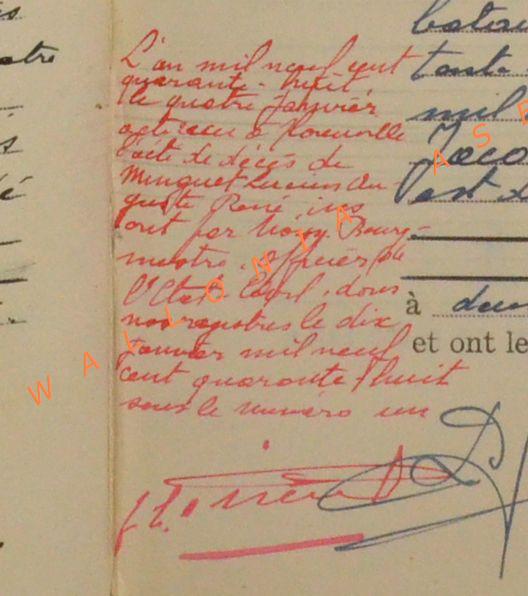 L'an mil neuf cent
quarante-huit
le quatre Janvier
acte reçu à
l'acte de décès de
Minguet Lucien Au
guste René, ins
crit par Nous, Bourg-
mestre, officier de
l'Etat-Civil, dans
nos registres le dix
Janvier mil neuf
cent quarante huit
sous le numéro un
WALLONIA ASB
atre
s
é
mil
est
à deux
et ont le